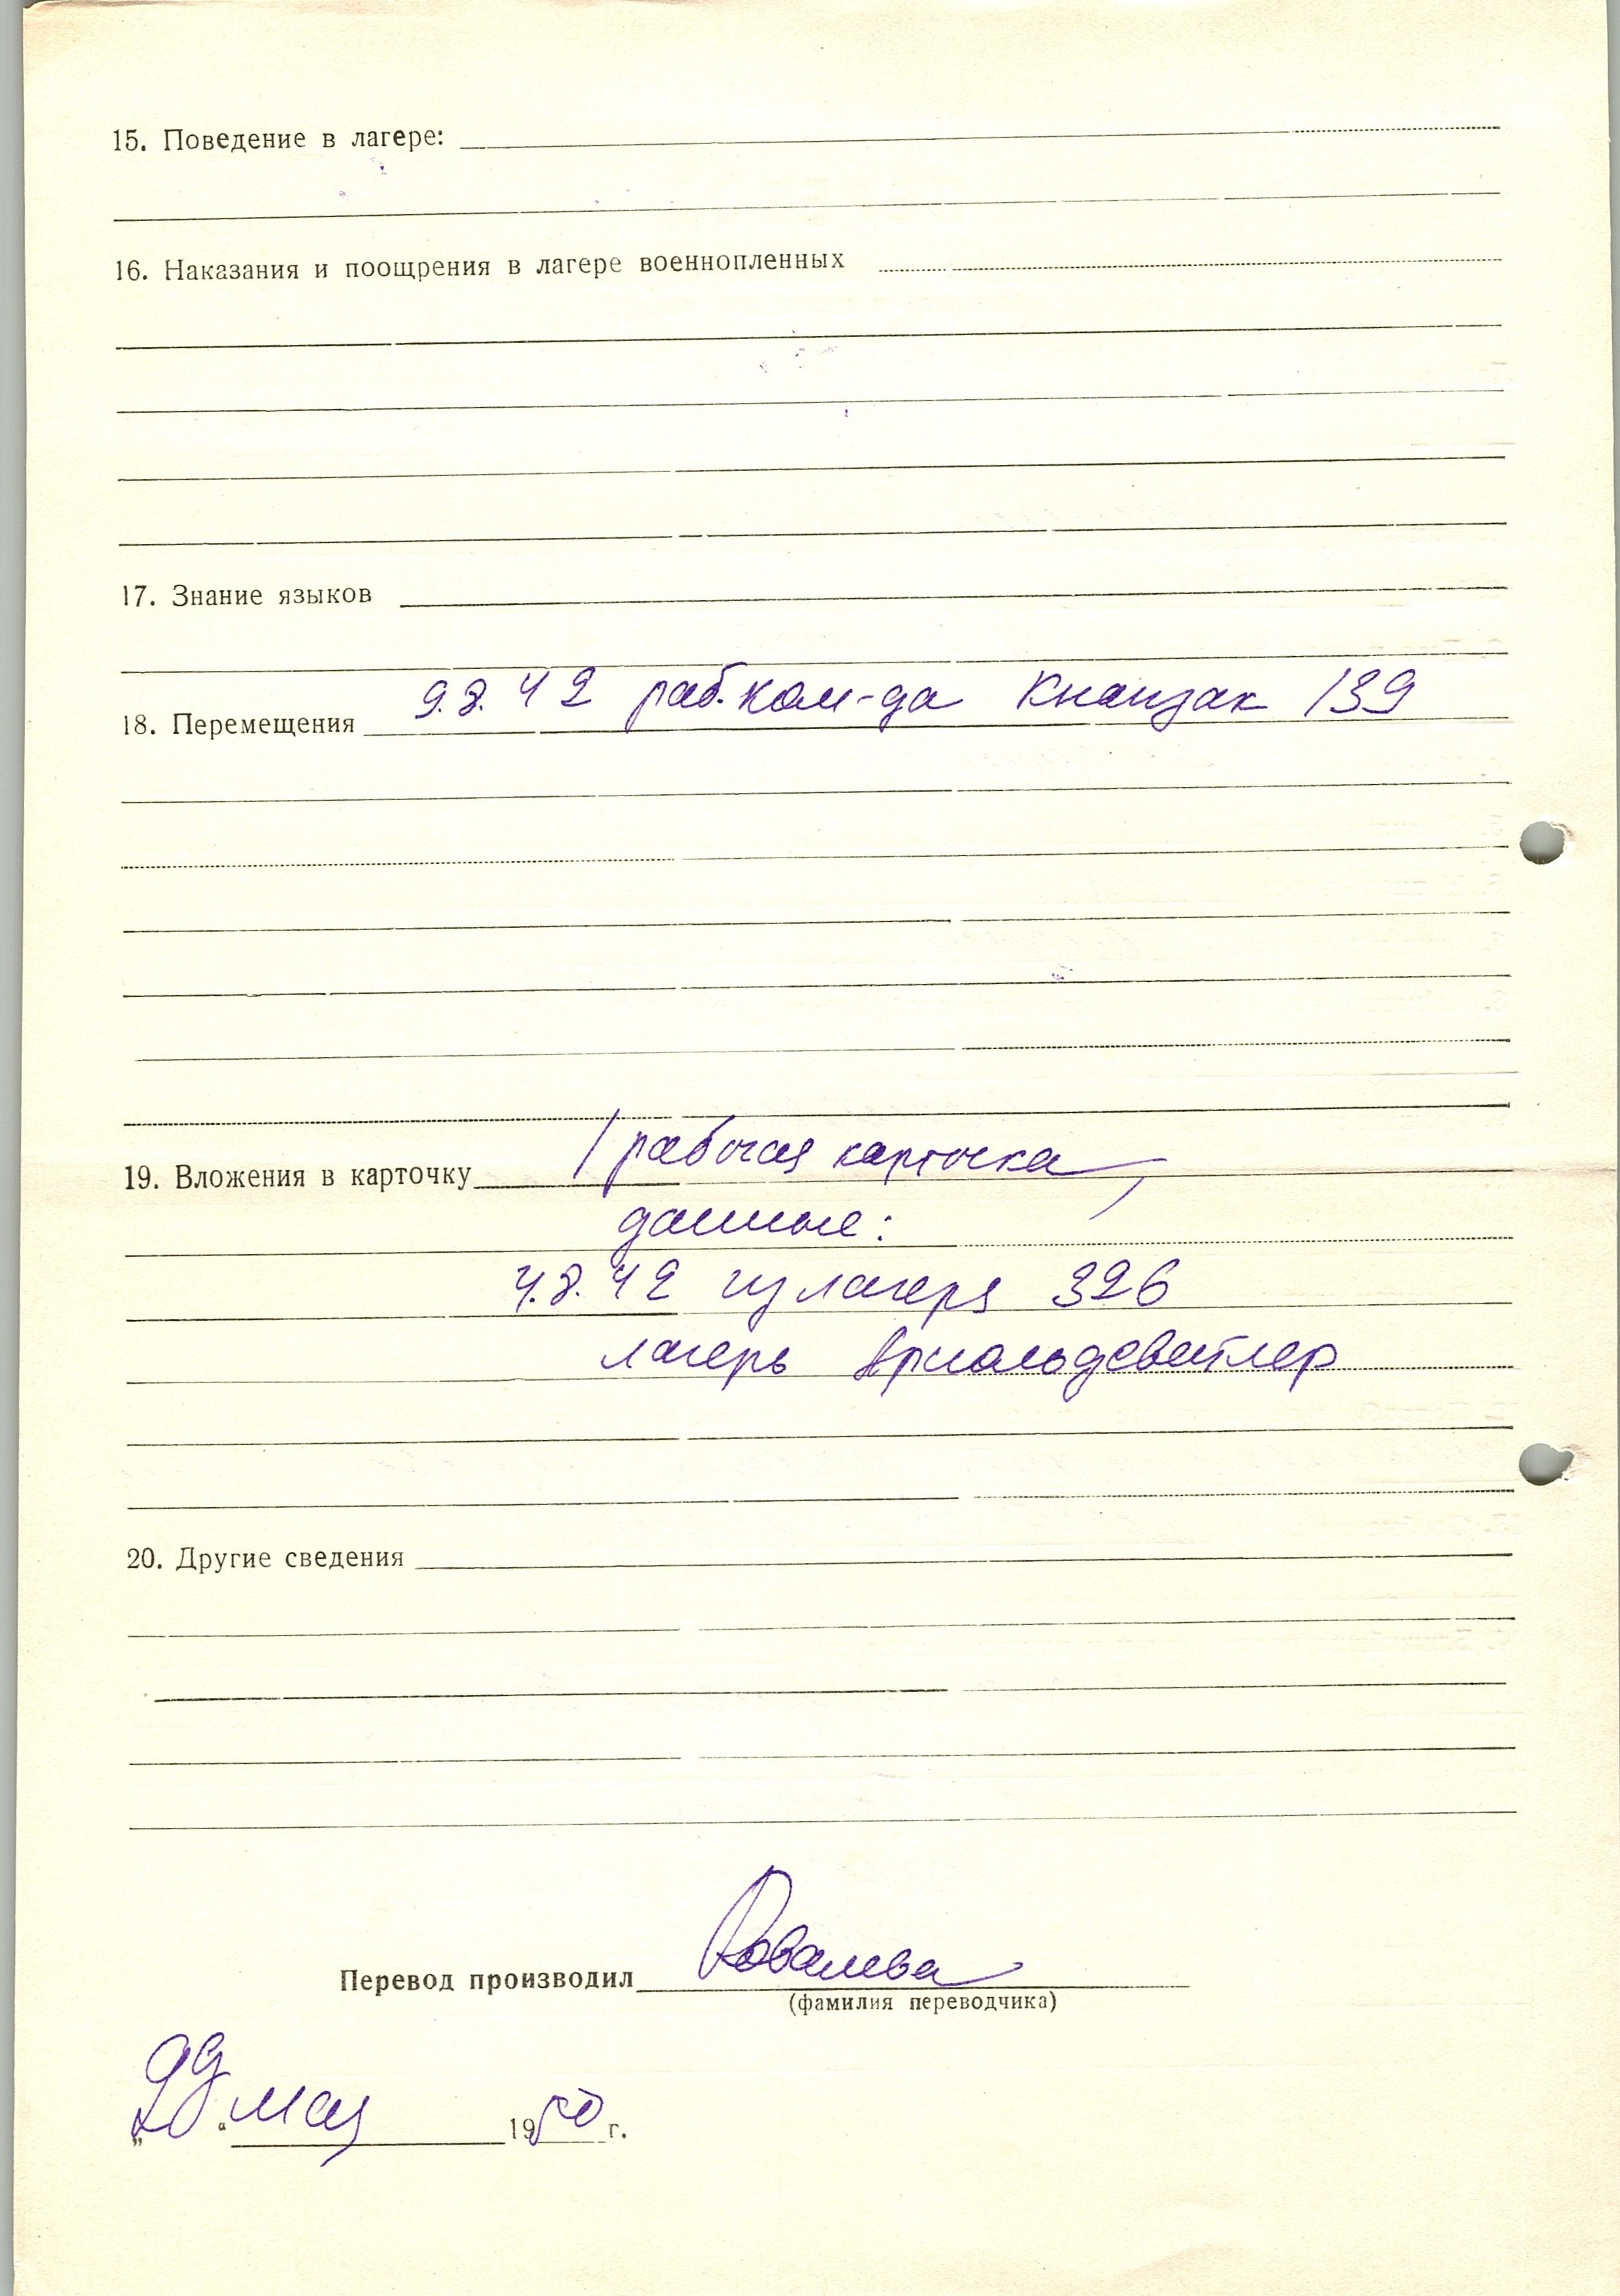 15. Поведение в лагере:
16. Наказания и поощрения в лагере военнопленных
17. Знание языков
9.8.42 раб.ком-да Кнапзак 139
18. Перемещения
19. Вложения в карточку / рабочая карточка /
данные:
4.8.42 из лагеря 326
лагерь
20. Другие сведения
Перевод производил Ковалева
(фамилия переводчика)
„29“ мая 1950 г.